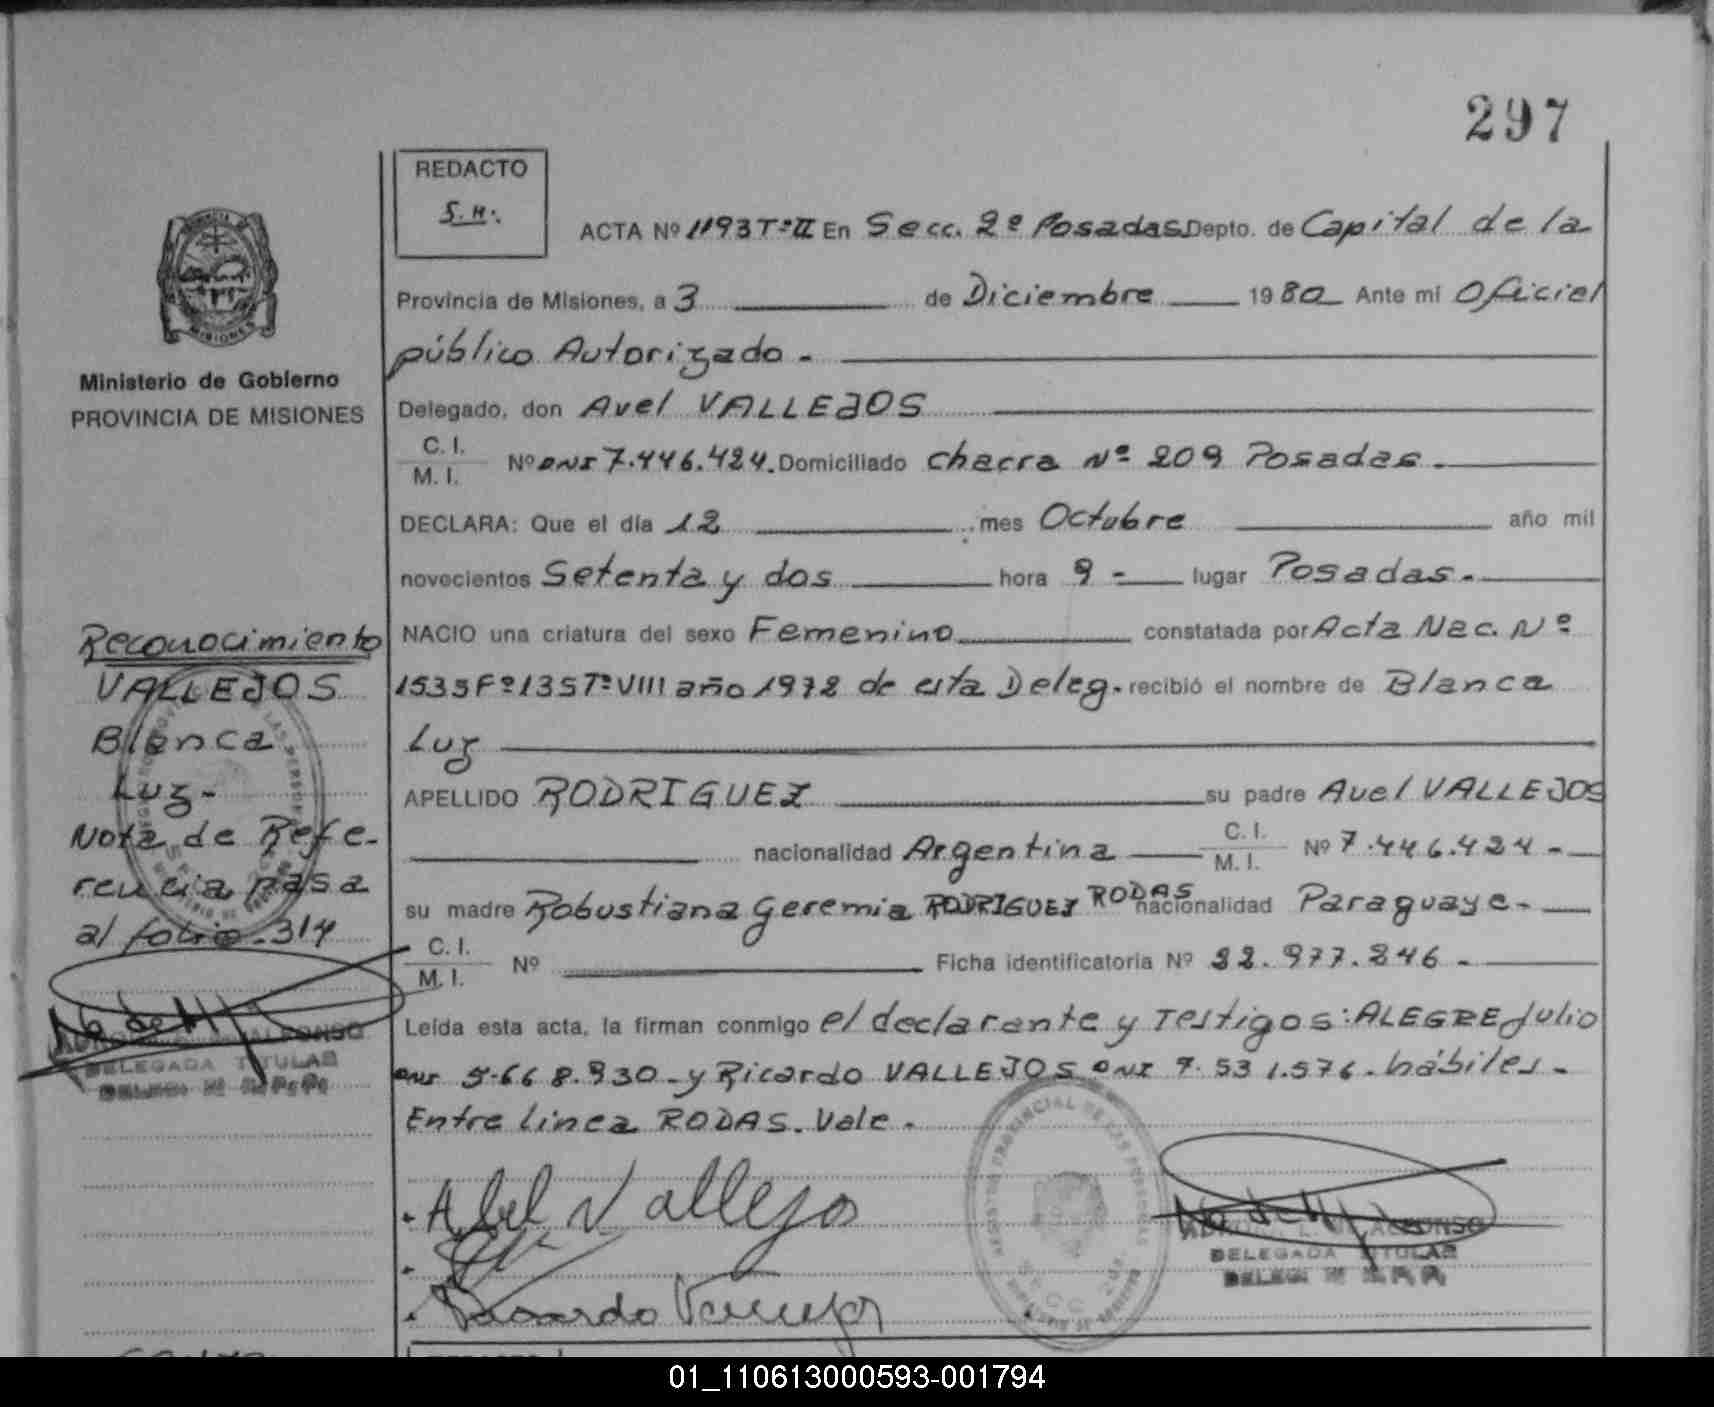 297
REDACTO
S.H.
ACTA Nº 1193 Tº II En Secc. 2º Posadas Depto. de Capital de la
Provincia de Misiones, a 3 de Diciembre 1980 Ante mi Oficiel
público Autorizado.
Ministerio de Gobierno
PROVINCIA DE MISIONES
Delegado, don Avel VALLEJOS
C. I.
M. I.
Nº DNI 7.446.424. Domiciliado chacra Nº 209 Posadas.
DECLARA: Que el día 12 mes Octubre año mil
novecientos Setenta y dos hora 9 - lugar Posadas.
NACIO una criatura del sexo Femenino constatada por Acta Nac. Nº
1535 Fº 135 Tº VIII año 1972 de esta Deleg. recibió el nombre de Blanca
Luz
APELLIDO RODRIGUEZ su padre Avel VALLEJOS
nacionalidad Argentina C. I. M. I. Nº 7.446.424 -
su madre Robustiana Geremia RODRIGUEZ RODAS nacionalidad Paraguaye-
C. I.
M. I.
Nº Ficha identificatoria Nº 22.977.246 -
Leída esta acta, la firman conmigo el declarante y Testigos: ALEGRE Julio
DNI 5.668.930 - y Ricardo VALLEJOS DNI 7.531.576. hábiles.
Entre linea RODAS. Vale.
Abel Vallejos
Reconocimiento
VALLEJOS
Blanca
Luz -
Nota de Refe-
rencia pasa
al folio 314
DELEGADA TITULAR
DELEGADA TITULAR
01_110613000593-001794